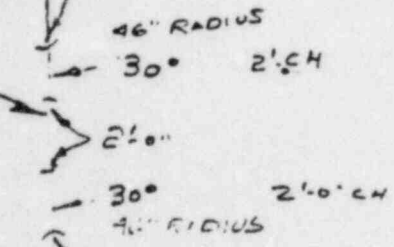 46" RADIUS
30° 2'. CH
2'-0"
30° 2'-0" CH
RADIUS